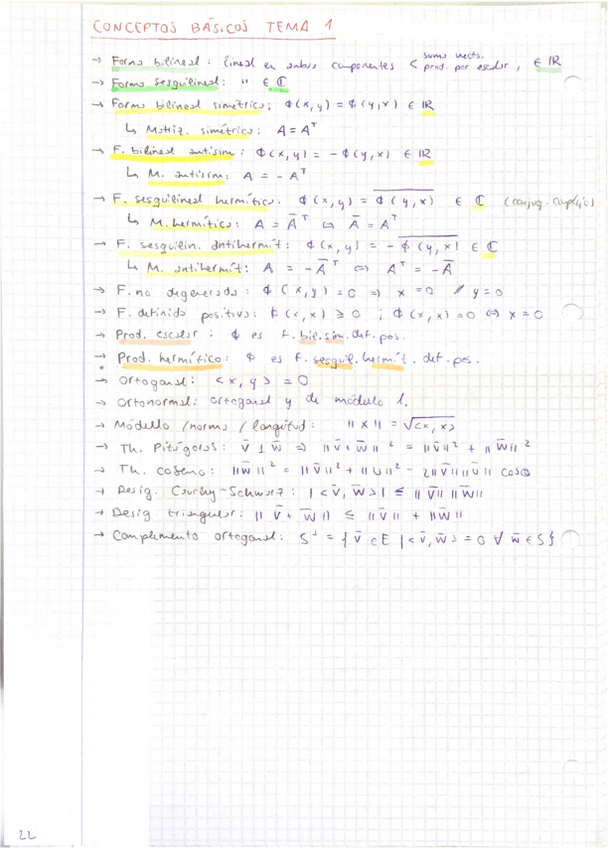 CONCEPTOS BÁSICOS TEMA 1
→ Forma bilineal: lineal en ambas componentes < suma vects. prod. por escalar, ∈ ℝ
→ Forma sesquilineal: " ∈ ℂ
→ Forma bilineal simétrica: ϕ(x,y) = ϕ(y,x) ∈ ℝ
↳ Matriz. simétrica: A = Aᵀ
→ F. bilineal antisim: ϕ(x,y) = -ϕ(y,x) ∈ ℝ
↳ M. antisim: A = -Aᵀ
→ F. sesquilineal hermítica: ϕ(x,y) = \overline{ϕ(y,x)} ∈ ℂ (conjug. complejo)
↳ M. hermítica: A = Āᵀ ⇔ Ā = Aᵀ
→ F. sesquilin. antihermít: ϕ(x,y) = - \overline{ϕ(y,x)} ∈ ℂ
↳ M. antihermít: A = -Āᵀ ⇔ Aᵀ = -Ā
→ F. no degenerada: ϕ(x,y) = 0 ⇒ x = 0 // y = 0
→ F. definida positiva: ϕ(x,x) ≥ 0 ; ϕ(x,x) = 0 ⇔ x = 0
→ Prod. escalar: ϕ es f. bil. sim. def. pos.
→ Prod. hermítico: ϕ es f. sesquil. hermít. def. pos.
→ Ortogonal: <x,y> = 0
→ Ortonormal: ortogonal y de módulo 1.
→ Módulo / norma / longitud: ||x|| = √<x,x>
→ Th. Pitágoras: v̄ ⊥ w̄ ⇒ ||v̄ + w̄||² = ||v̄||² + ||w̄||²
→ Th. coseno: ||w̄||² = ||v̄||² + ||ū||² - 2||v̄|| ||ū|| cosθ
→ Desig. Cauchy-Schwarz: |<v̄, w̄>| ≤ ||v̄|| ||w̄||
→ Desig triangular: ||v̄ + w̄|| ≤ ||v̄|| + ||w̄||
→ Complemento ortogonal: S⊥ = {v̄ ∈ E | <v̄, w̄> = 0 ∀ w̄ ∈ S}
22